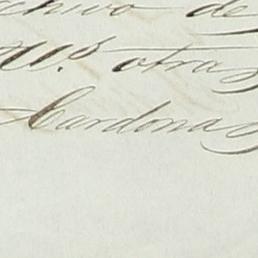 chivo de
otra
Cardona